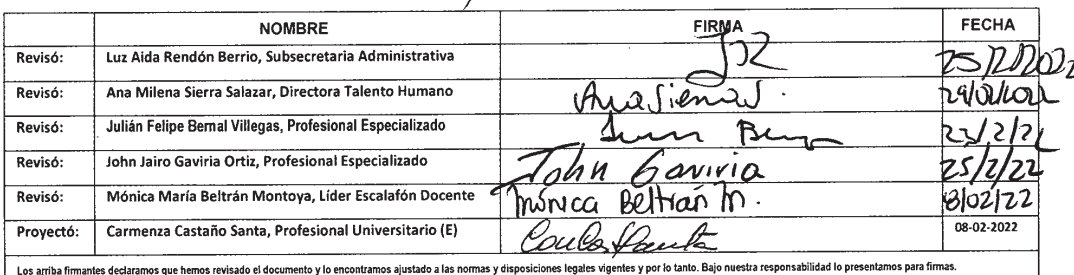 NOMBRE FIRMA FECHA
Revisó: Luz Aida Rendón Berrio, Subsecretaria Administrativa
Revisó: Ana Milena Sierra Salazar, Directora Talento Humano AnaSierraS.
Revisó: Julián Felipe Bernal Villegas, Profesional Especializado
Revisó: John Jairo Gaviria Ortiz, Profesional Especializado John Gaviria 25/2/22
Revisó: Mónica María Beltrán Montoya, Líder Escalafón Docente Mónica Beltrán M. 8/02/22
Proyectó: Carmenza Castaño Santa, Profesional Universitario (E) 08-02-2022
Los arriba firmantes declaramos que hemos revisado el documento y lo encontramos ajustado a las normas y disposiciones legales vigentes y por lo tanto. Bajo nuestra responsabilidad lo presentamos para firmas.